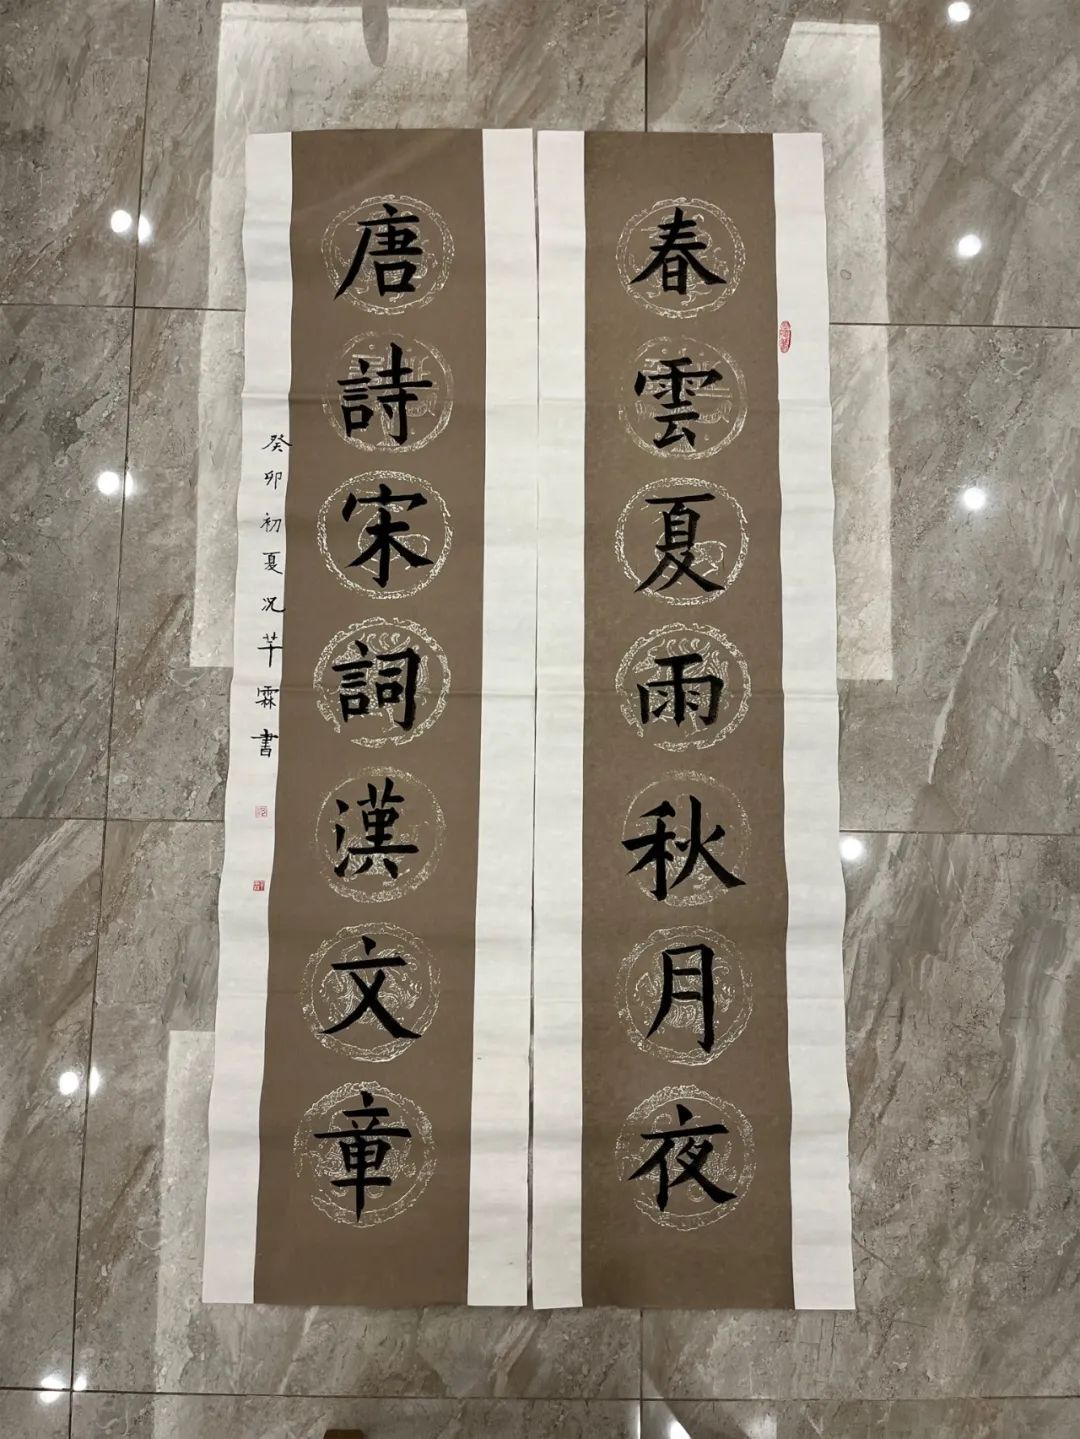 春雲夏雨秋月夜
唐詩宋詞漢文章
癸卯初夏况芊霖書